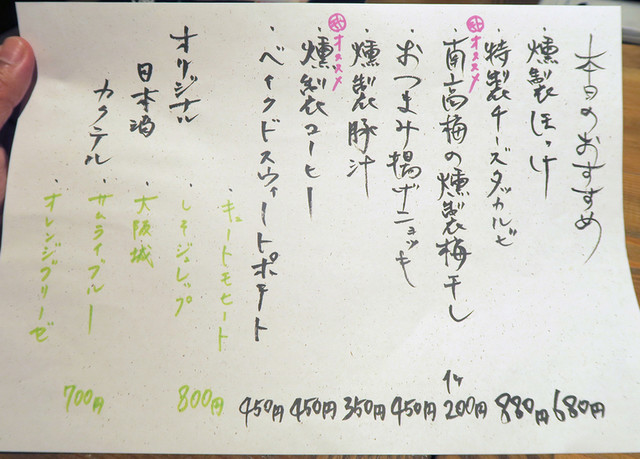 本日のおすすめ
・燻製ほっけ 680円
・特製チーズダッカルビ 880円
オススメ
・南高梅の燻製梅干し 1ケ 200円
・おつまみ揚げニョッキ 450円
・燻製豚汁 350円
オススメ
・燻製コーヒー 450円
・ベイクドスウィートポテト 450円
オリジナル
日本酒
カクテル
・キュートモヒート
・しそジュレップ 800円
・大阪城
・サムライブルー
・オレンジブリーゼ 700円